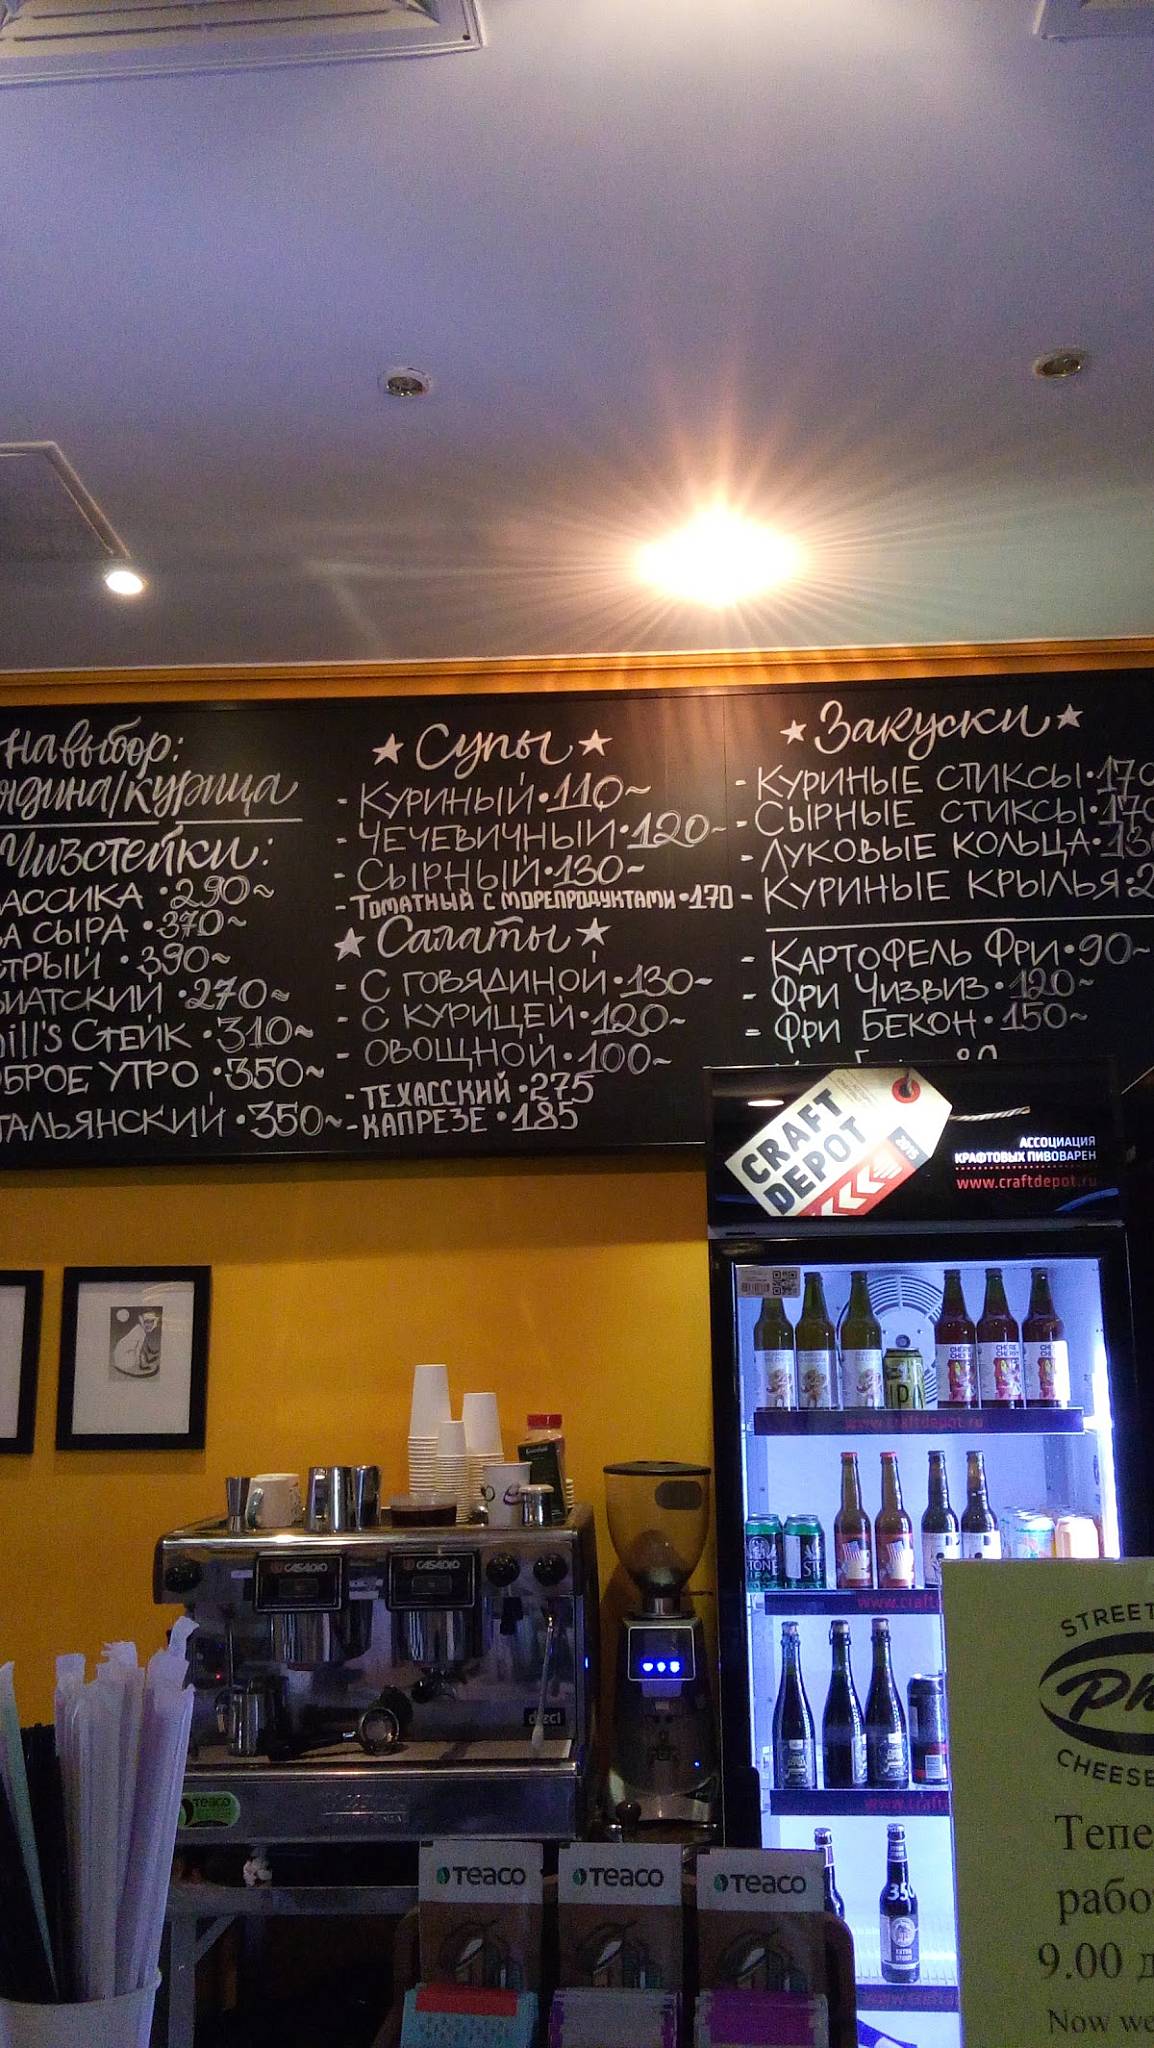 На выбор:
курица
Чизстейки:
290~
СЫРА • 370~
• 390~
• 270~
СТЕЙК • 310~
УТРО • 350~
• 350~
★ Супы ★
- КУРИНЫЙ • 110~
- ЧЕЧЕВИЧНЫЙ • 120~
- СЫРНЫЙ • 130~
- ТОМАТНЫЙ С МОРЕПРОДУКТАМИ • 170
★ Салаты ★
- С ГОВЯДИНОЙ • 130~
- С КУРИЦЕЙ • 120~
- ОВОЩНОЙ • 100~
- ТЕХАССКИЙ • 275
- КАПРЕЗЕ • 185
★ Закуски ★
- КУРИНЫЕ СТИКСЫ • 170
- СЫРНЫЕ СТИКСЫ • 170
- ЛУКОВЫЕ КОЛЬЦА • 130
- КУРИНЫЕ КРЫЛЬЯ •
- КАРТОФЕЛЬ ФРИ • 90~
- ФРИ ЧИЗВИЗ • 120~
- ФРИ БЕКОН • 150~
CRAFT
DEPOT
2015
АССОЦИАЦИЯ
КРАФТОВЫХ ПИВОВАРЕН
www.craftdepot.ru
www.craftdepot.ru
CASADIO
CASADIO
dieci
Teaco
Teaco
Teaco
Teaco
STONE
IPA
350
STREET
9.00
Now we